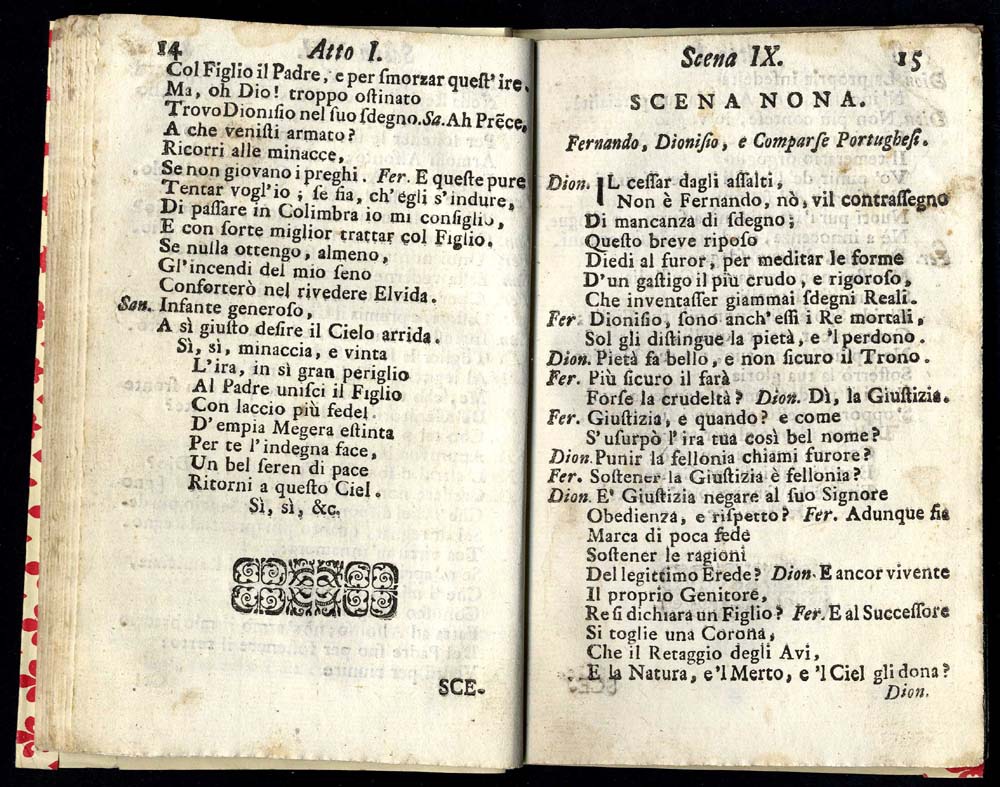 14 Atto I.
Col Figlio il Padre, e per ſmorzar queſt' ire.
Ma, oh Dio! troppo oſtinato
Trovo Dioniſio nel ſuo ſdegno. Sa. Ah Prẽce,
A che veniſti armato?
Ricorri alle minacce,
Se non giovano i preghi. Fer. E queſte pure
Tentar vogl'io; ſe fia, ch'egli s'indure,
Di paſſare in Colimbra io mi conſiglio,
E con ſorte miglior trattar col Figlio.
Se nulla ottengo, almeno,
Gl'incendi del mio ſeno
Conforterò nel rivedere Elvida.
San. Infante generoſo,
A sì giuſto deſire il Cielo arrida.
Sì, sì, minaccia, e vinta
L'ira, in sì gran periglio
Al Padre uniſci il Figlio
Con laccio più fedel.
D'empia Megera eſtinta
Per te l'indegna face,
Un bel ſeren di pace
Ritorni a queſto Ciel.
Sì, sì, &c.
SCE-
Scena IX. 15
SCENA NONA.
Fernando, Dioniſio, e Comparſe Portugheſi.
Dion. IL ceſſar dagli aſſalti,
Non è Fernando, nò, vil contraſſegno
Di mancanza di ſdegno;
Queſto breve ripoſo
Diedi al furor, per meditar le forme
D'un gaſtigo il più crudo, e rigoroſo,
Che inventaſſer giammai ſdegni Reali.
Fer. Dioniſio, ſono anch'eſſi i Re mortali,
Sol gli diſtingue la pietà, e 'l perdono.
Dion. Pietà fa bello, e non ſicuro il Trono.
Fer. Più ſicuro il farà
Forſe la crudeltà? Dion. Dì, la Giuſtizia.
Fer. Giuſtizia, e quando? e come
S'uſurpò l'ira tua così bel nome?
Dion. Punir la fellonia chiami furore?
Fer. Soſtener la Giuſtizia è fellonia?
Dion. E' Giuſtizia negare al ſuo Signore
Obedienza, e riſpetto? Fer. Adunque fia
Marca di poca fede
Soſtener le ragioni
Del legittimo Erede? Dion. E ancor vivente
Il proprio Genitore,
Re ſi dichiara un Figlio? Fer. E al Succeſſore
Si toglie una Corona,
Che il Retaggio degli Avi,
E la Natura, e'l Merto, e 'l Ciel gli dona?
Dion.